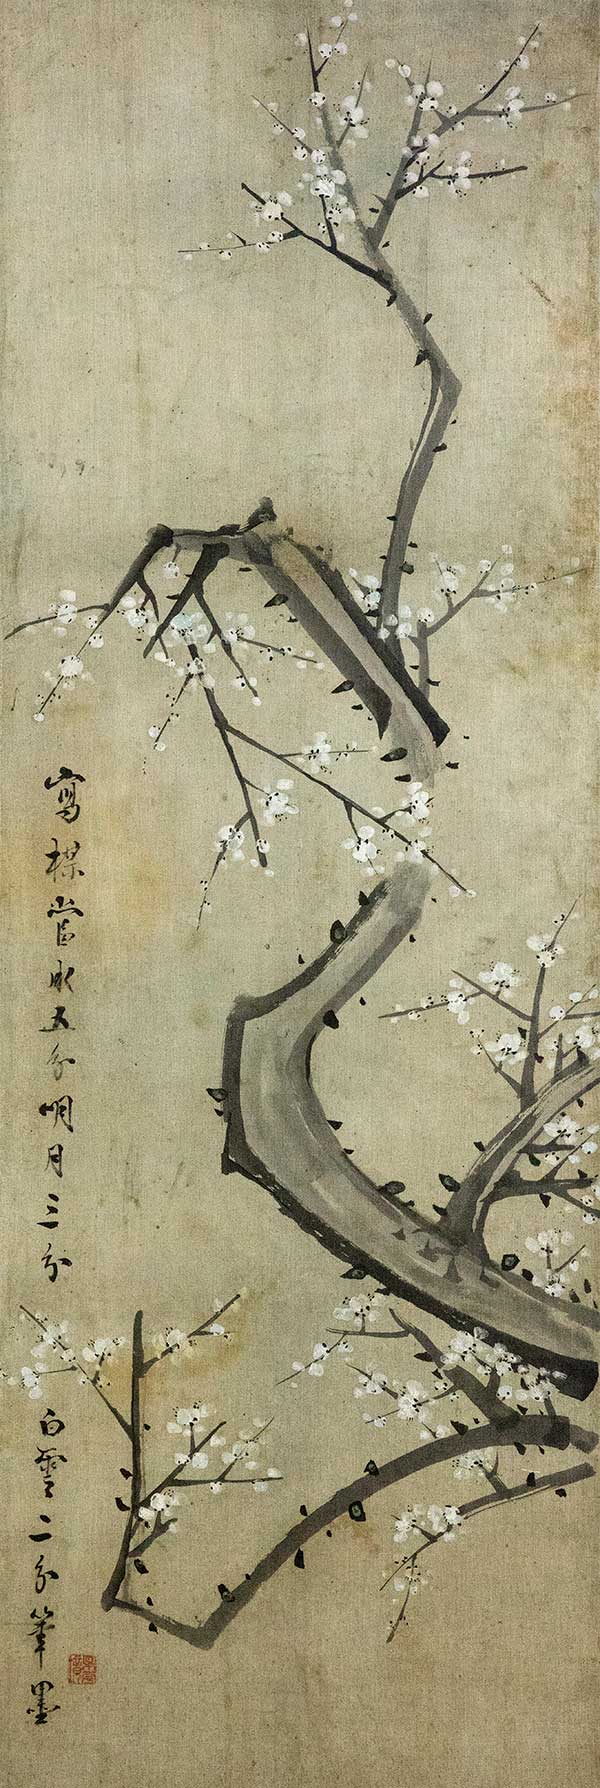 寫楳當水五分明月三分白雲二分筆墨